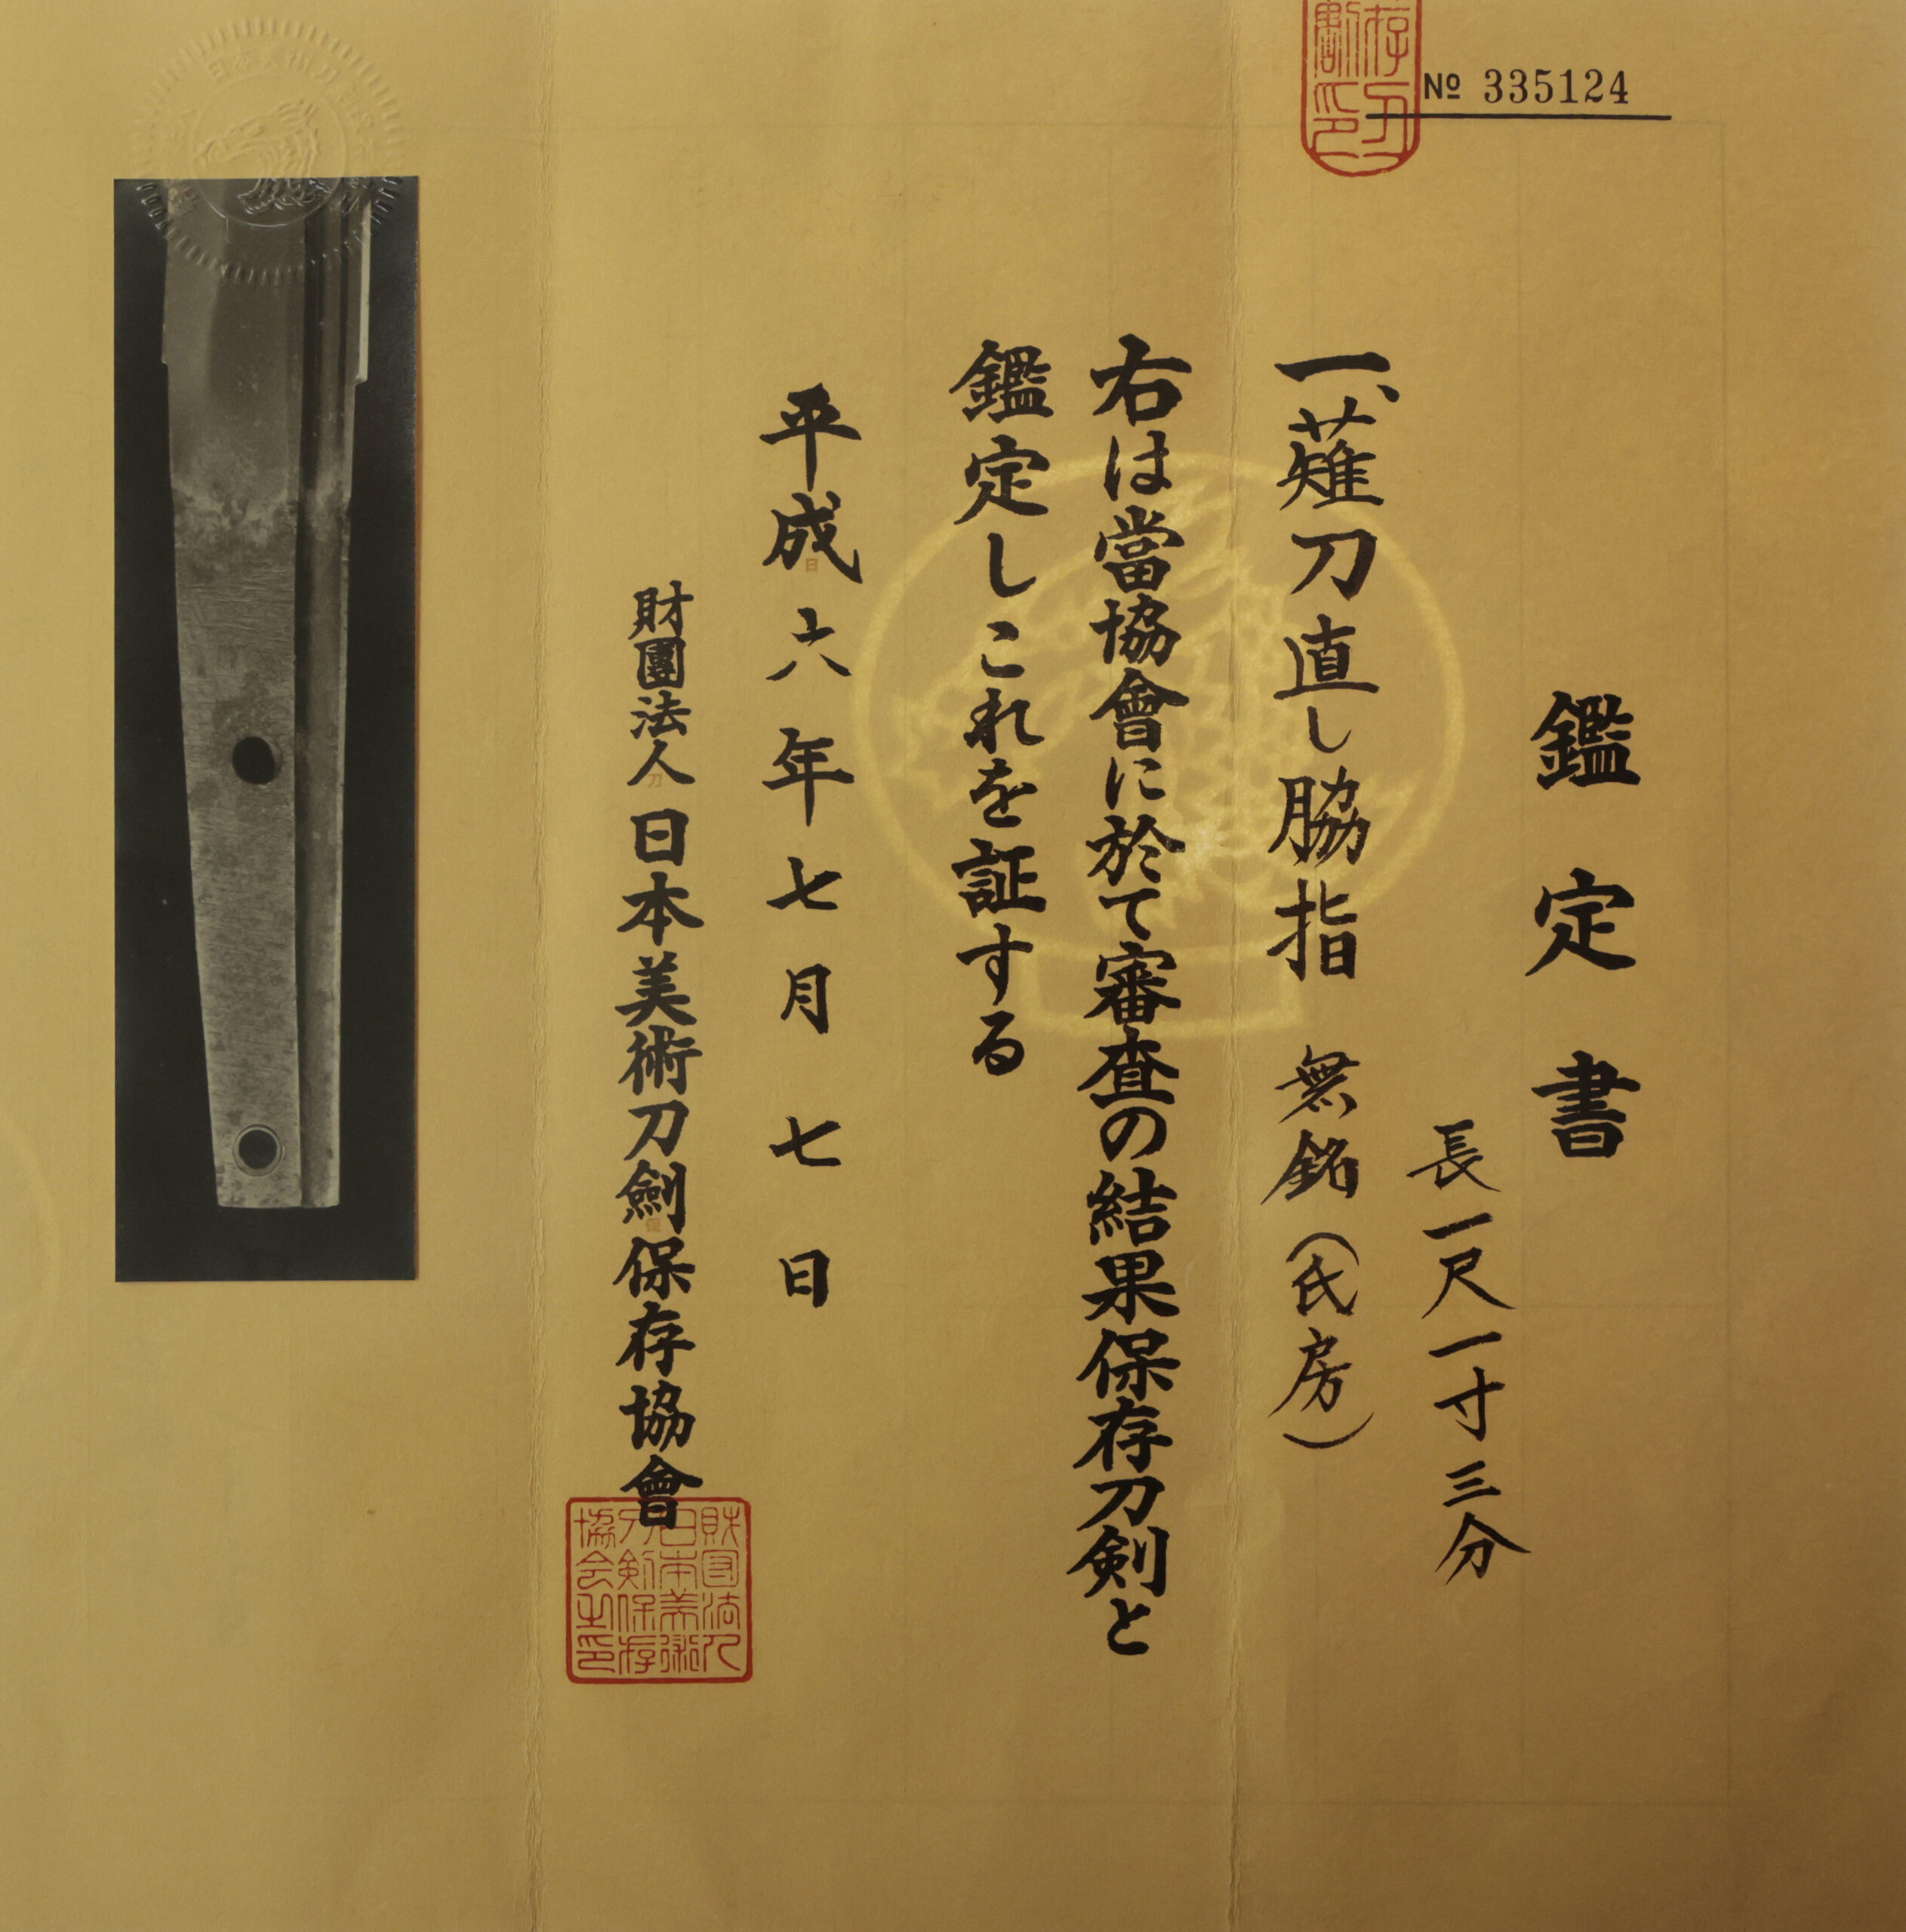 № 335124
鑑定書
長一尺一寸三分
一、薙刀直し脇指 無銘（氏房）
右は當協會に於て審査の結果保存刀剣と
鑑定しこれを証する
平成六年七月七日
財團法人日本美術刀劍保存協會
財団法人
日本美術
刀剣保存
協会之印